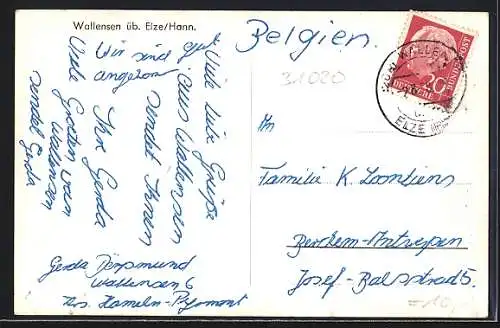 Wallensen üb. Elze/Hann.
Belgien.
31020
20
DEUTSCHE
BUNDESPOST
ELZE
Viele liebe Grüße
aus Wallensen
sendet Ihnen
Ihre Gerda
Wir sind gut
angekom
Viele
Wallensen
sendet Gerda
An
Familie K. Loontiens
Berchem-Antwerpen
Josef-Balsstraat 5.
Gerda
Wallensen 6
Krs. Hameln-Pyrmont